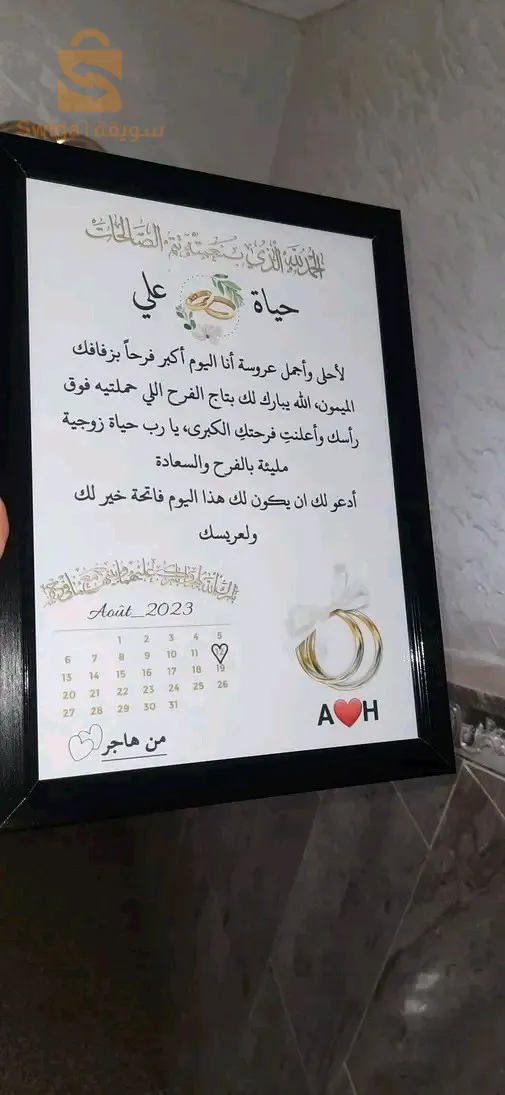 سويقة | Swiqa
الحمد لله الذي بنعمته تتم الصالحات
حياة علي
لأحلى وأجمل عروسة أنا اليوم أكبر فرحاً بزفافك
الميمون، الله يبارك لك بتاج الفرح اللي حملتيه فوق
رأسك وأعلنتِ فرحتكِ الكبرى، يا رب حياة زوجية
مليئة بالفرح والسعادة
أدعو لك ان يكون لك هذا اليوم فاتحة خير لك
ولعريسك
Août_2023
1 2 3 4 5
6 7 8 9 10 11 12
13 14 15 16 17 18 19
20 21 22 23 24 25 26
27 28 29 30 31
A❤️H
من هاجر